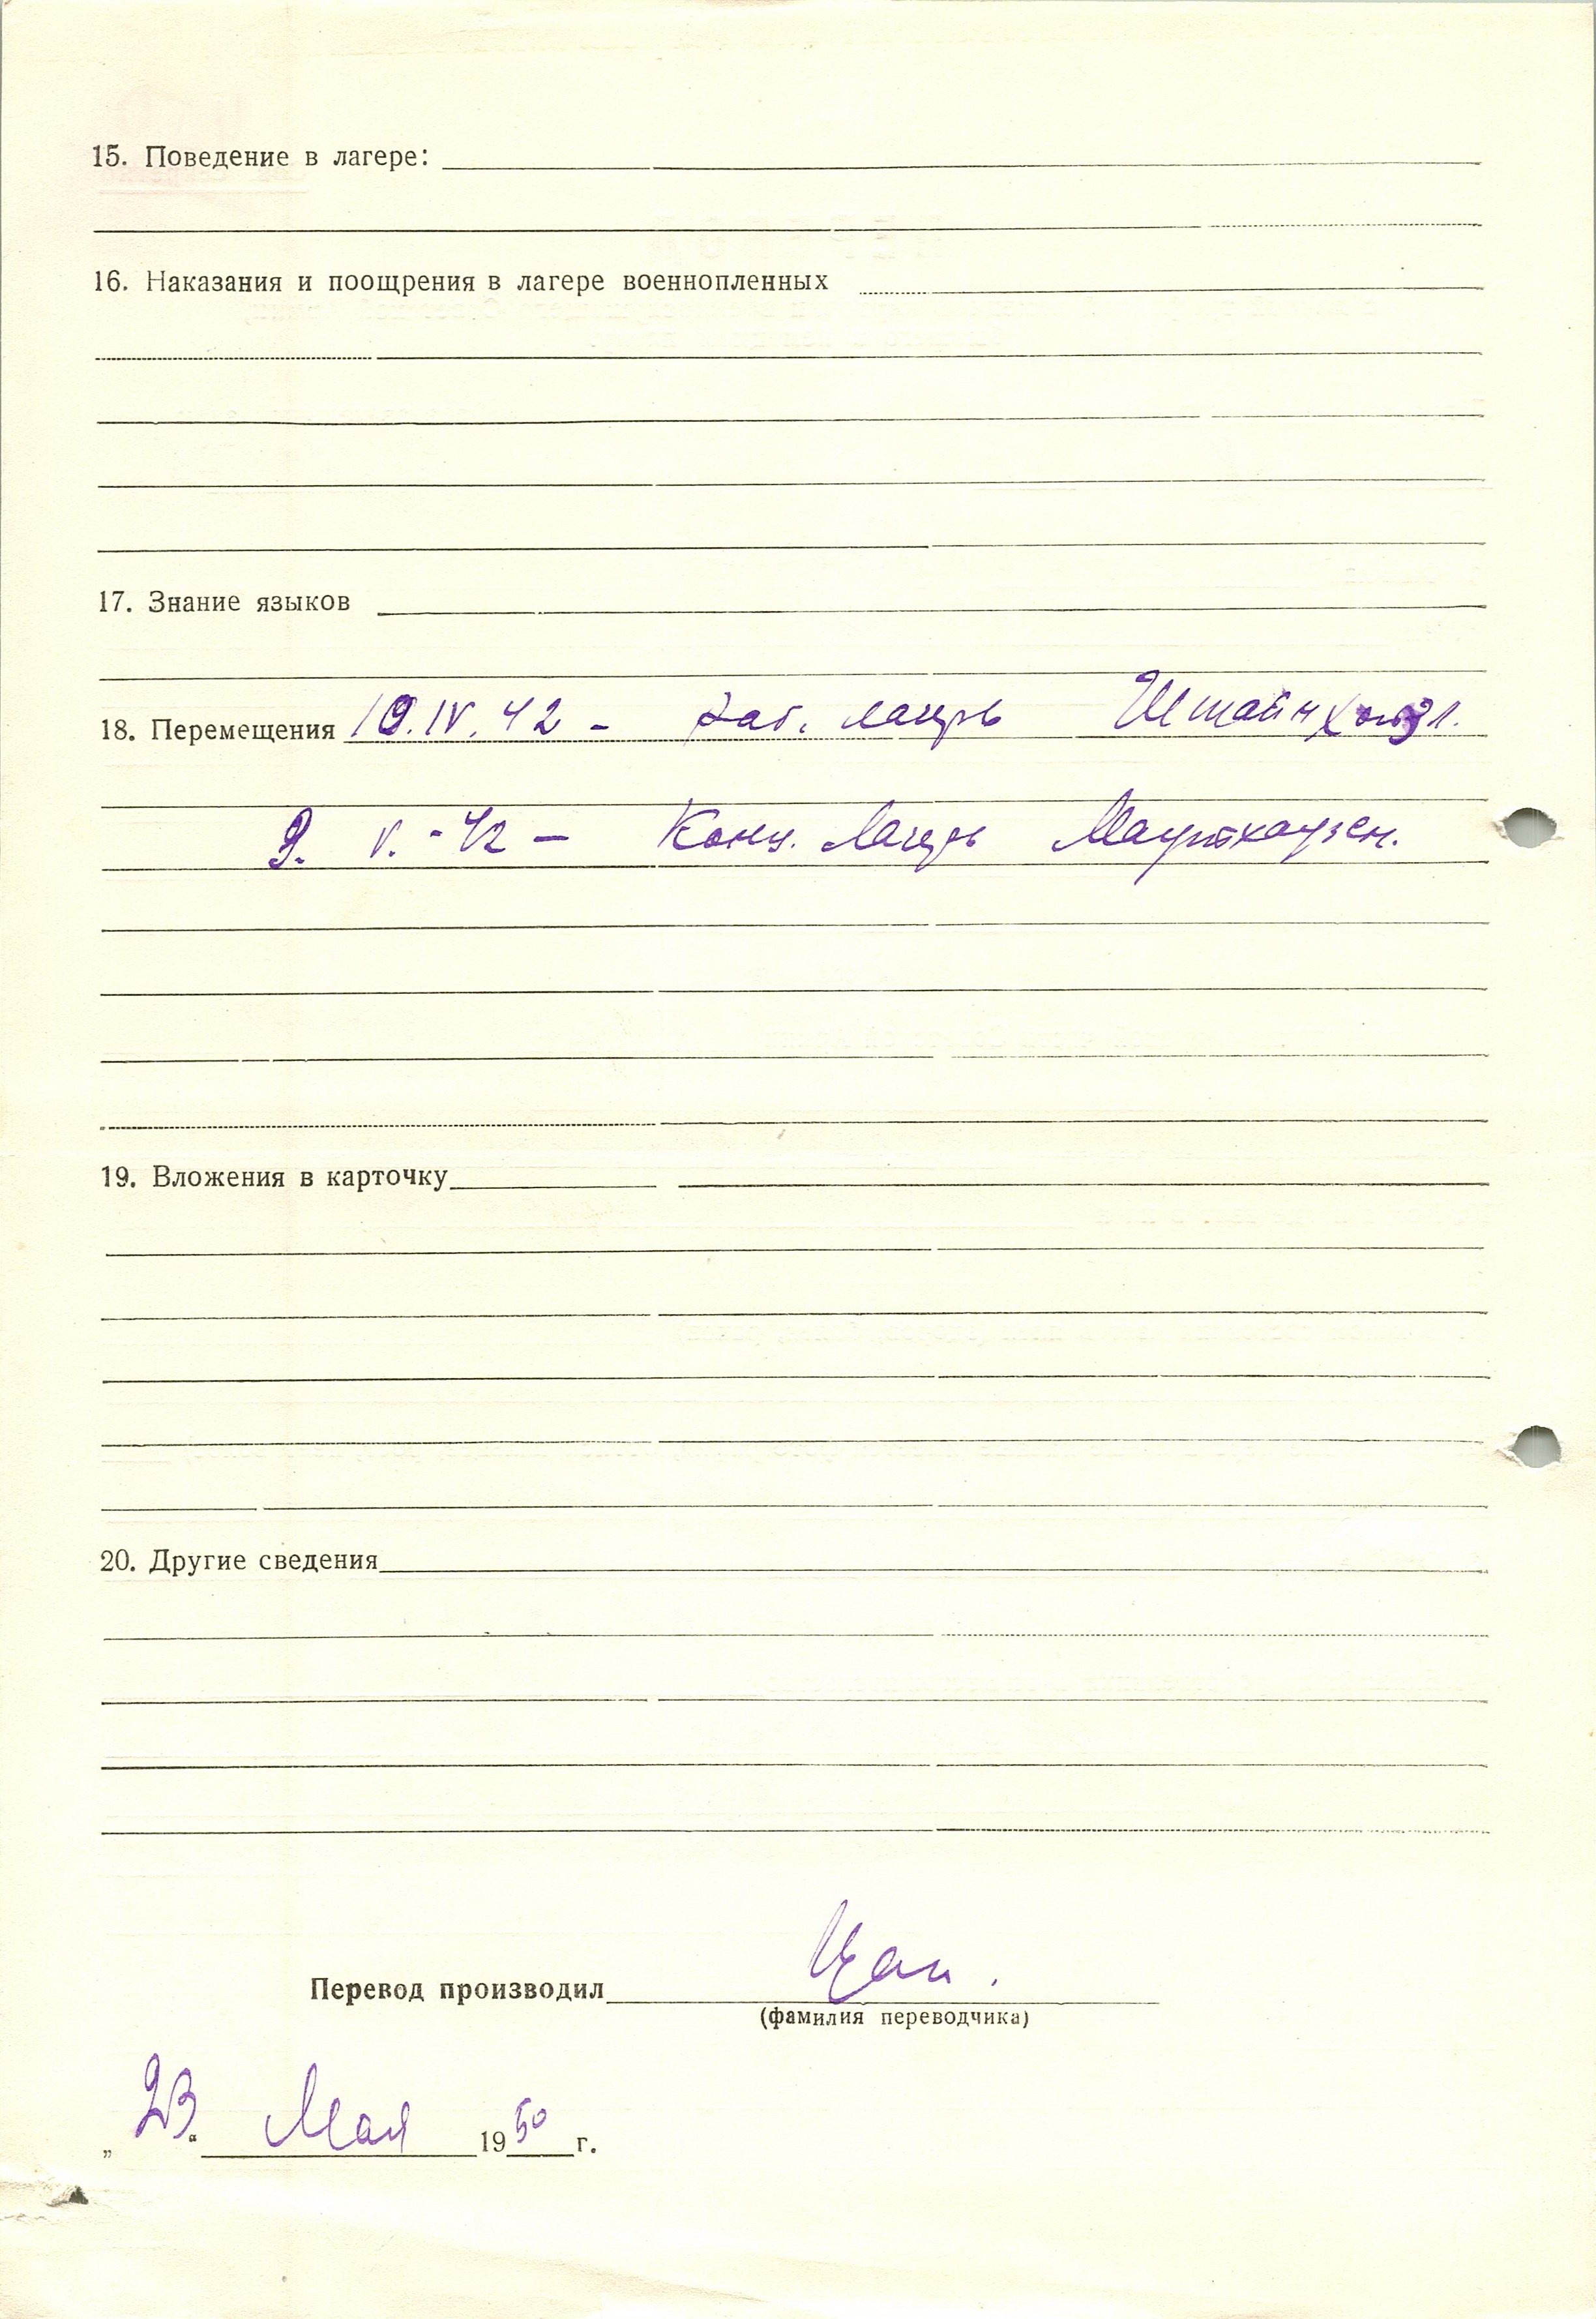 15. Поведение в лагере:
16. Наказания и поощрения в лагере военнопленных
17. Знание языков
18. Перемещения 19.IV.42 - раб. лагерь
9. V. - 42 - Конц. Лагерь Маутхаузен.
19. Вложения в карточку
20. Другие сведения
Перевод производил
(фамилия переводчика)
„23“ Мая 1950 г.